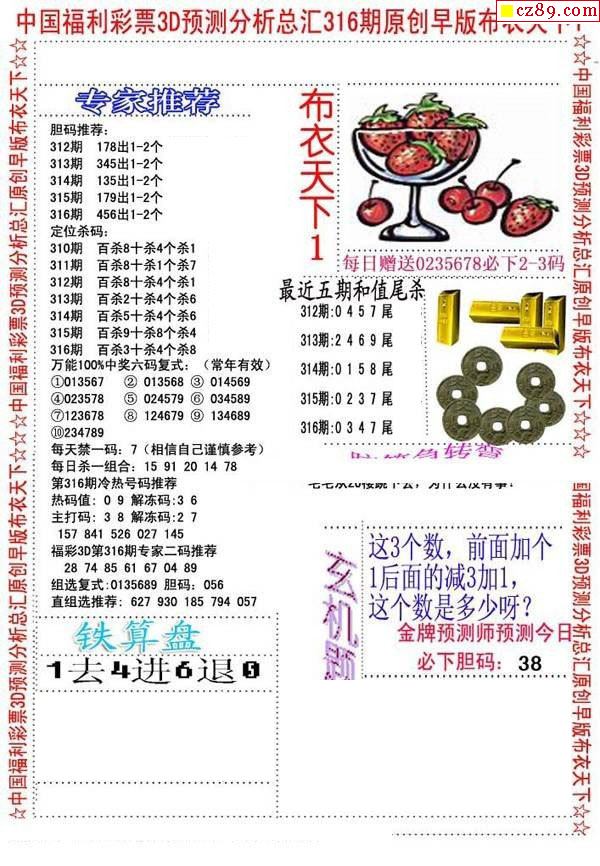 cz89.com
中国福利彩票3D预测分析总汇316期原创早版布衣天下
☆中国福利彩票3D预测分析总汇原创早版布衣天下☆☆中国福利彩票3D预测分析总汇原创早版布衣天下☆☆
专家推荐
胆码推荐:
312期 178出1-2个
313期 345出1-2个
314期 135出1-2个
315期 179出1-2个
316期 456出1-2个
定位杀码:
310期 百杀8十杀4个杀1
311期 百杀8十杀1个杀7
312期 百杀8十杀4个杀1
313期 百杀2十杀4个杀6
314期 百杀5十杀4个杀6
315期 百杀9十杀8个杀4
316期 百杀3十杀4个杀8
万能100%中奖六码复式:(常年有效)
①013567 ② 013568 ③ 014569
④023578 ⑤ 024579 ⑥ 034589
⑦123678 ⑧ 124679 ⑨ 134689
⑩234789
每天禁一码: 7(相信自己谨慎参考)
每日杀一组合: 15 91 20 14 78
第316期冷热号码推荐
热码值: 0 9 解冻码:3 6
主打码: 3 8 解冻码:2 7
157 841 526 027 145
福彩3D第316期专家二码推荐
28 74 85 61 67 04 89
组选复式:0135689 胆码: 056
直组选推荐: 627 930 185 794 057
铁算盘
1去4进6退0
布衣天下1
每日赠送0235678必下2-3码
最近五期和值尾杀
312期:0 4 5 7 尾
313期:2 4 6 9 尾
314期:0 1 5 8 尾
315期:0 2 3 7 尾
316期:0 3 4 7 尾
玄机题
这3个数，前面加个
1后面的减3加1,
这个数是多少呀?
金牌预测师预测今日
必下胆码: 38
☆中国福利彩票3D预测分析总汇原创早版布衣天下☆☆
国福利彩票3D预测分析总汇原创早版布衣天下☆